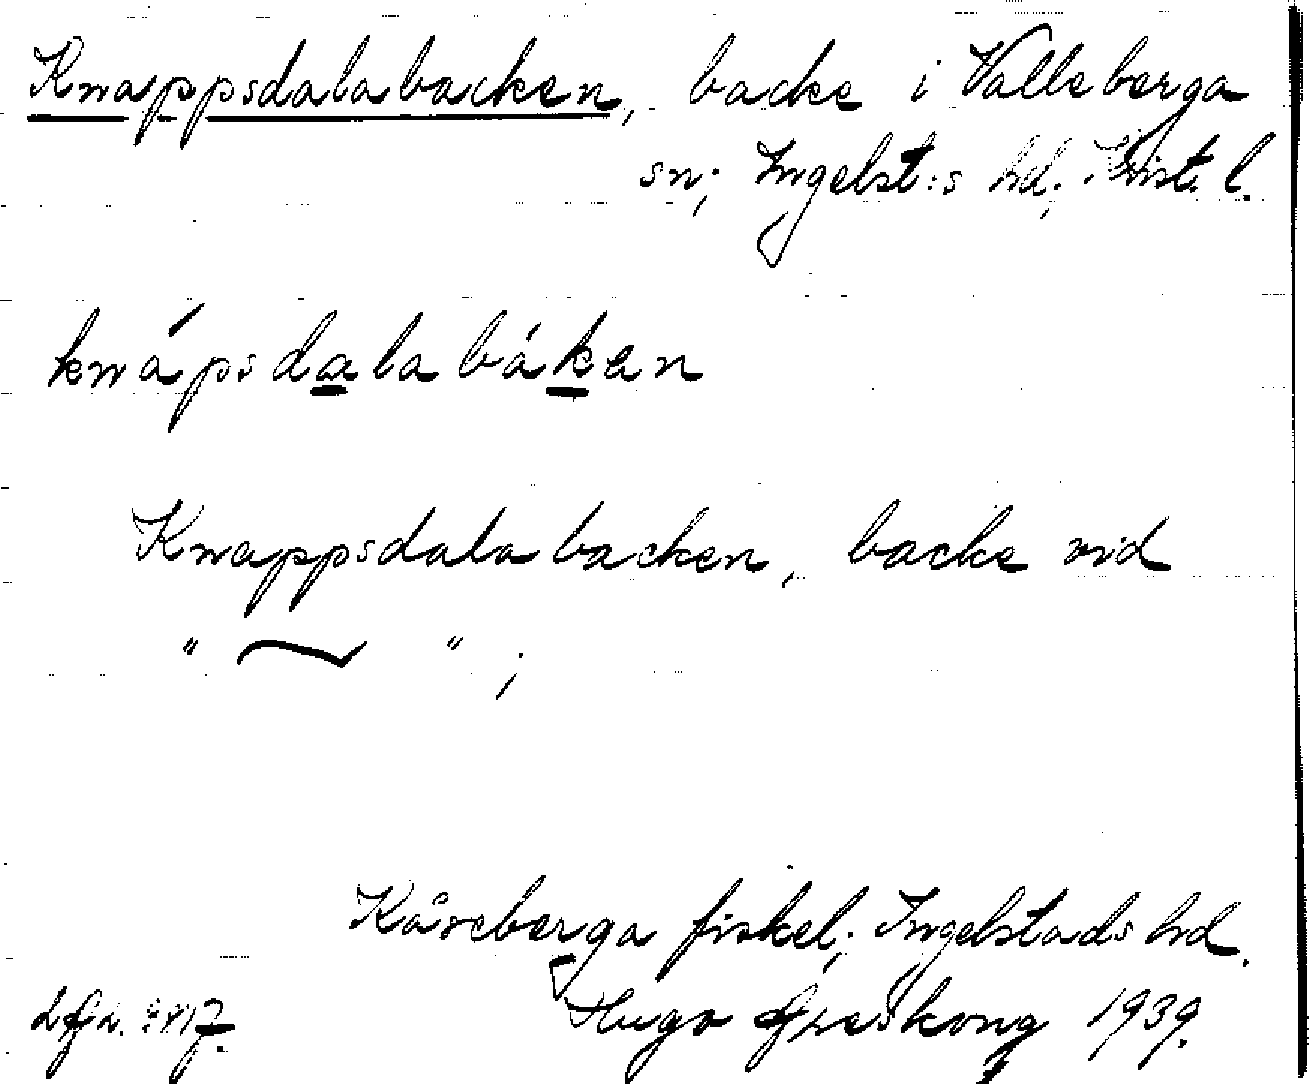 Knappsdalabacken, backe i Valleberga
sn; Ingelst:s hd; Krist. l.
knápsdalabáken
Knappsdalabacken, backe vid
" ~ " ;
Kåseberga fiskel; Ingelstads hd.
Hugo 1939.